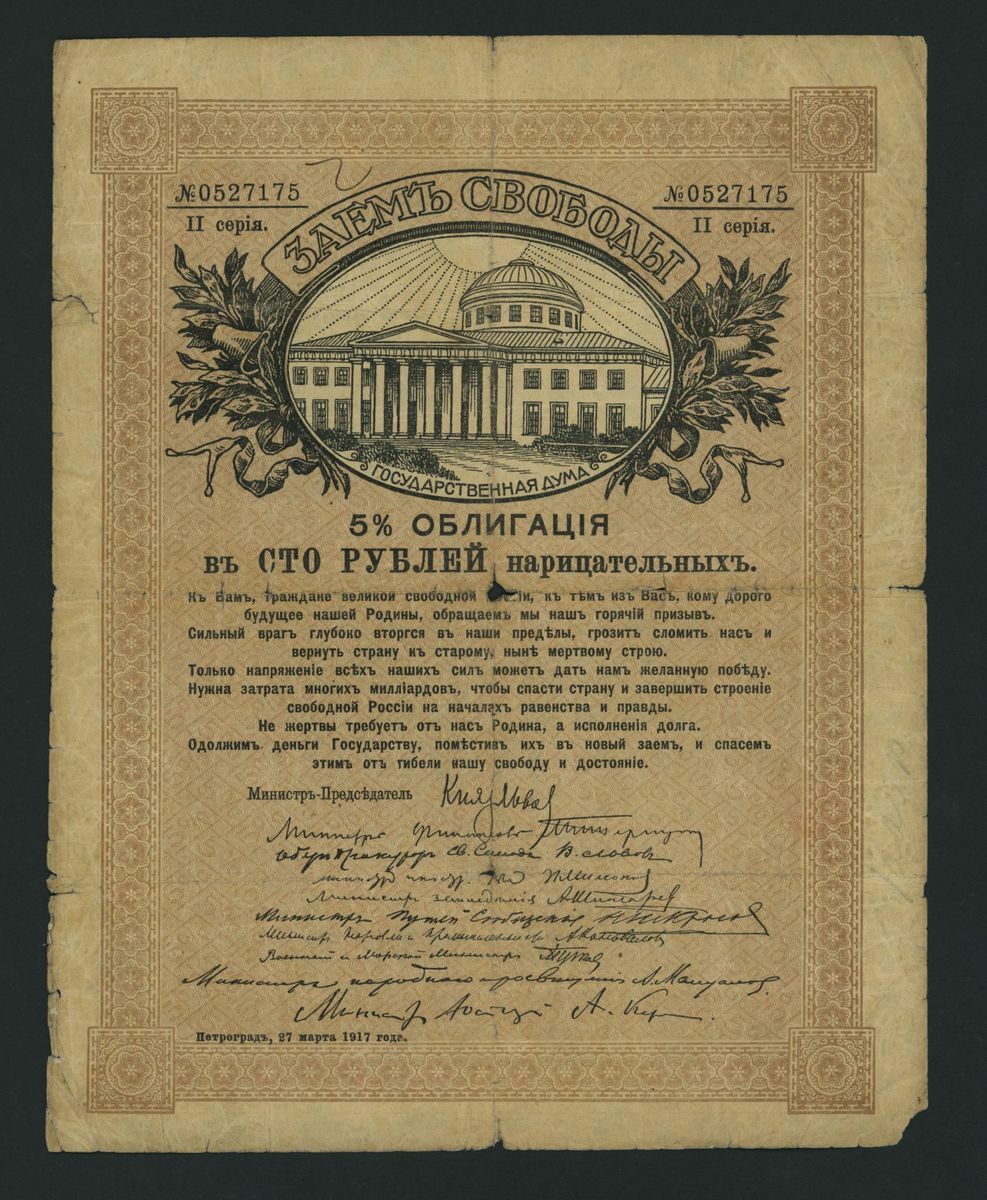 №0527175
№0527175
II серія.
II серія.
ЗАЕМЪ СВОБОДЫ
ГОСУДАРСТВЕННАЯ ДУМА
5% ОБЛИГАЦІЯ
въ СТО РУБЛЕЙ нарицательныхъ.
Къ Вамъ, граждане великой свободной къ тѣмъ изъ Васъ, кому дорого
будущее нашей Родины, обращаемъ мы нашъ горячій призывъ.
Сильный врагъ глубоко вторгся въ наши предѣлы, грозитъ сломить насъ и
вернуть страну къ старому, нынѣ мертвому строю.
Только напряженіе всѣхъ нашихъ силъ можетъ дать намъ желанную побѣду.
Нужна затрата многихъ милліардовъ, чтобы спасти страну и завершить строеніе
свободной Россіи на началахъ равенства и правды.
Не жертвы требуетъ отъ насъ Родина, а исполненія долга.
Одолжимъ деньги Государству, помѣстивъ ихъ въ новый заемъ, и спасемъ
этимъ отъ гибели нашу свободу и достояніе.
Министръ-Предсѣдатель Князь Львов
Министръ Финансовъ
Оберъ Прокуроръ Св. Синода В. Львовъ
Министръ
Министръ земледѣлія А Шингарев
Министръ Путей Сообщенія
Министръ Торговли и Промышленности А Коновалов
Военный и Морской Министръ
Министръ народнаго просвѣщенія А. Мануйлов.
Министръ Юстиціи А. Кер
Петроградъ, 27 марта 1917 года.